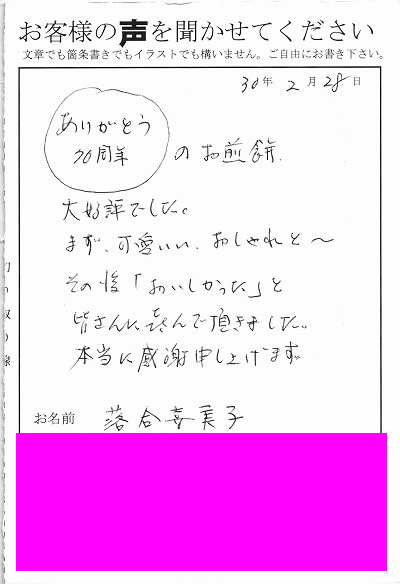 お客様の声を聞かせてください
文章でも箇条書きでもイラストでも構いません。ご自由にお書き下さい。
30年 2月 28日
ありがとう
20周年
のお煎餅、
大好評でした。
まず、可愛いい、おしゃれと〜
その後「おいしかった」と
皆さんに喜んで頂きました。
本当に感謝申し上げます。
お名前 落合喜美子